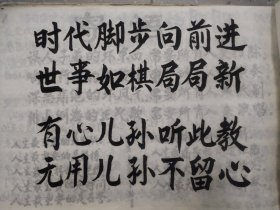 时代脚步向前进
世事如棋局局新
有心儿孙听此教
无用儿孙不留心